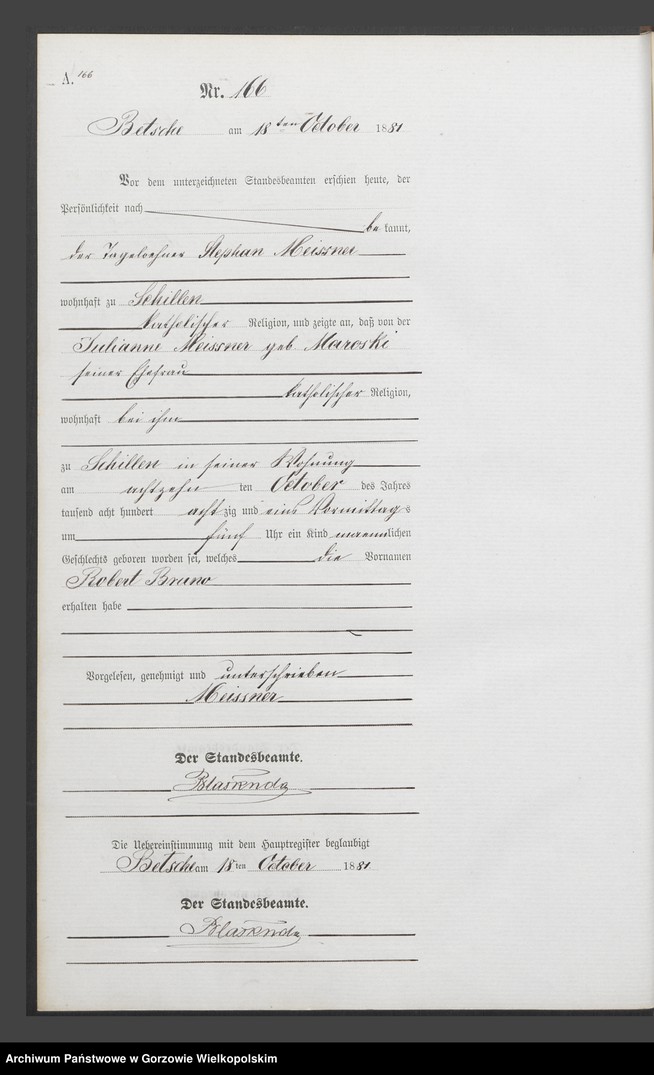 A. 166
Nr. 166
Betsche am 18ten October 1881
Vor dem unterzeichneten Standesbeamten erschien heute, der
Persönlichkeit nach
bekannt,
der Tageloehner Stephan Meissner
wohnhaft zu Schillen
katholischer Religion, und zeigte an, daß von der
Julianne Meissner geb. Maroski
seiner Ehefrau
katholischer Religion,
wohnhaft bei ihm
zu Schillen in seiner Wohnung
am achtzehn ten October des Jahres
tausend acht hundert achtzig und eins Vormittags
um fünf Uhr ein Kind maennlichen
Geschlechts geboren worden sei, welches die Vornamen
Robert Bruno
erhalten habe
Vorgelesen, genehmigt und unterschrieben
Meissner
Der Standesbeamte.
Die Uebereinstimmung mit dem Hauptregister beglaubigt
Betsche am 18ten October 1881
Der Standesbeamte.
Archiwum Państwowe w Gorzowie Wielkopolskim